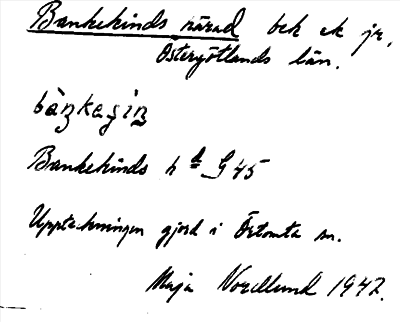 Bankekinds härad bek ek jr,
Östergötlands län.
Bankekinds hd G 45
Uppteckningen gjord i Örtomta sn.
Maja Nordlund 1942.